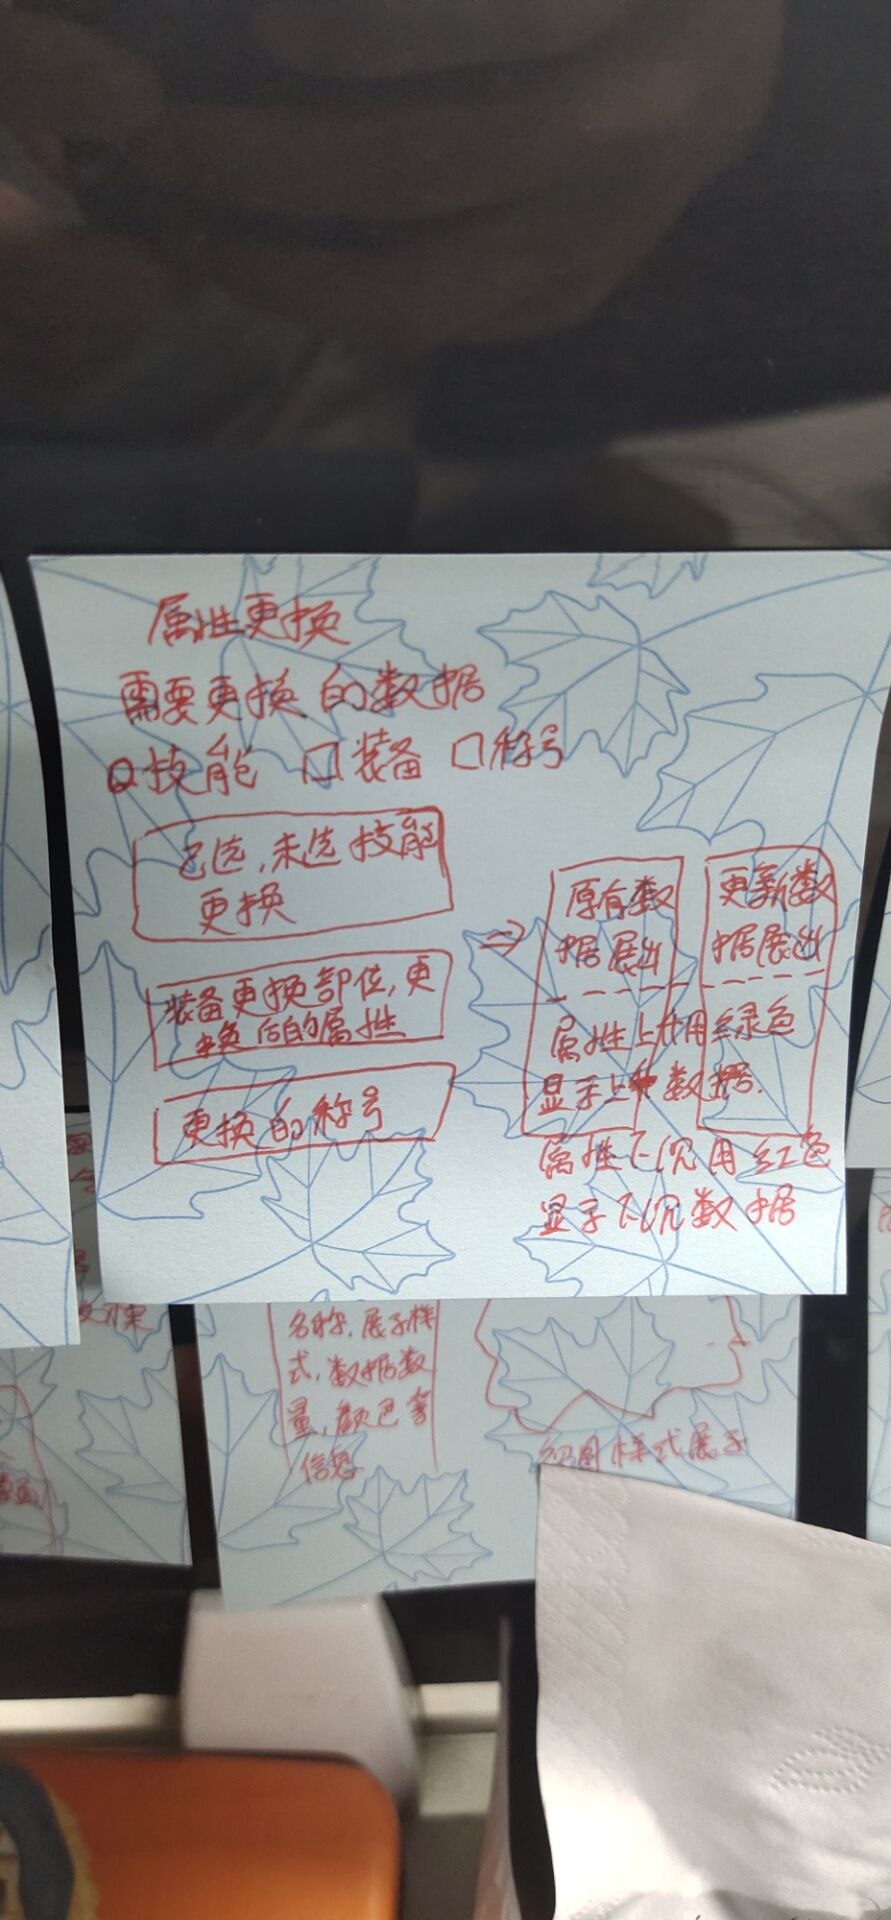 属性更换
需要更换的数据
技能 口装备 口称号
已选,未选技能
更换
装备更换部位,更
换后的属性
更换的称号
⇒
原有数
据展出
更新数
据展出
属性上升用绿色
显示上升数据.
属性下沉用红色
显示下沉数据
名称,展示样
式,数据数
量,颜色等
信息
图样式展示